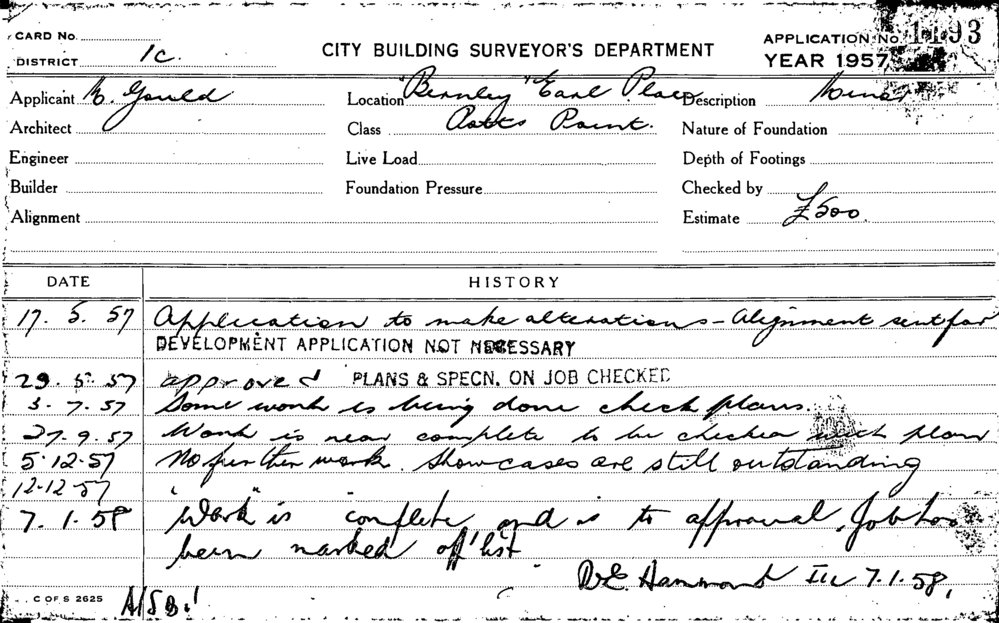 CARD No.
DISTRICT 1C
CITY BUILDING SURVEYOR'S DEPARTMENT
APPLICATION No 1193
YEAR 1957
Applicant Gould
Location "Bernley" Earl Place
Description Minor
Architect
Class Potts Point.
Nature of Foundation
Engineer
Live Load
Depth of Footings
Builder
Foundation Pressure
Checked by
Alignment
Estimate £500.
DATE HISTORY
17. 5. 57 Application to make alterations - Alignment sent for
DEVELOPMENT APPLICATION NOT NECESSARY
29. 5. 57 approved PLANS & SPECN. ON JOB CHECKED
3. 7. 57 Some work is being done check plans.
27. 9. 57 Work is near complete to be checked with plan
5.12.57 No further work. Showcases are still outstanding
12.12.57
7. 1. 58 "Work" is complete, and is to approval, Job has
been marked off list
Hammond 7.1.58,
C OF S 2625